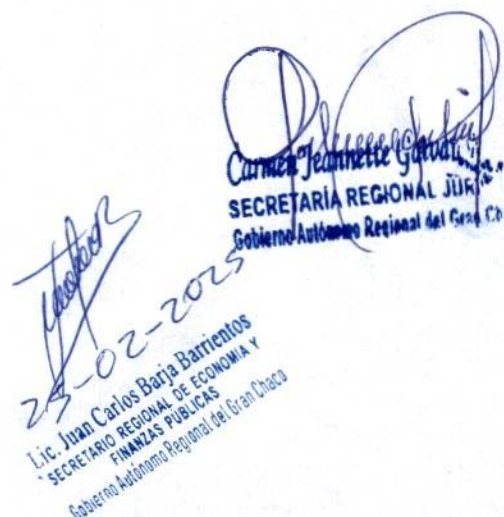 Carmen Jeannette
SECRETARÍA REGIONAL
Gobierno Autónomo Regional del Gran
25-02-2025
Lic. Juan Carlos Barja Barrientos
SECRETARIO REGIONAL DE ECONOMIA Y
FINANZAS PÚBLICAS
Gobierno Autónomo Regional del Gran Chaco